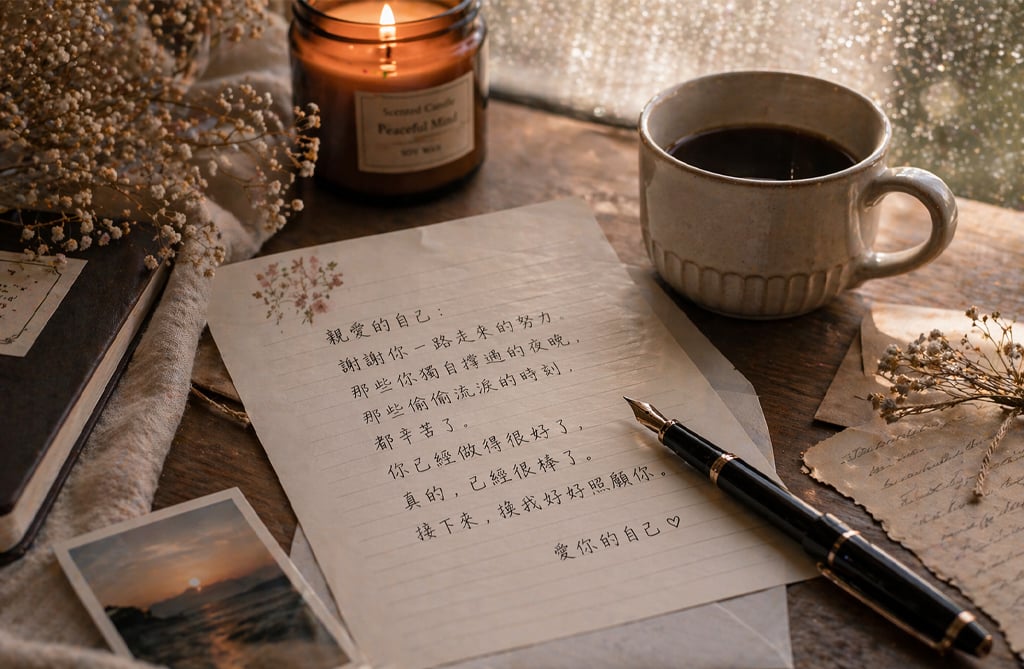 Scented Candle
Peaceful Mind
SOY WAX
親愛的自己：
謝謝你一路走來的努力。
那些你獨自撐過的夜晚，
那些偷偷流淚的時刻，
都辛苦了。
你已經做得很好了，
真的，已經很棒了。
接下來，換我好好照顧你。
愛你的自己♡